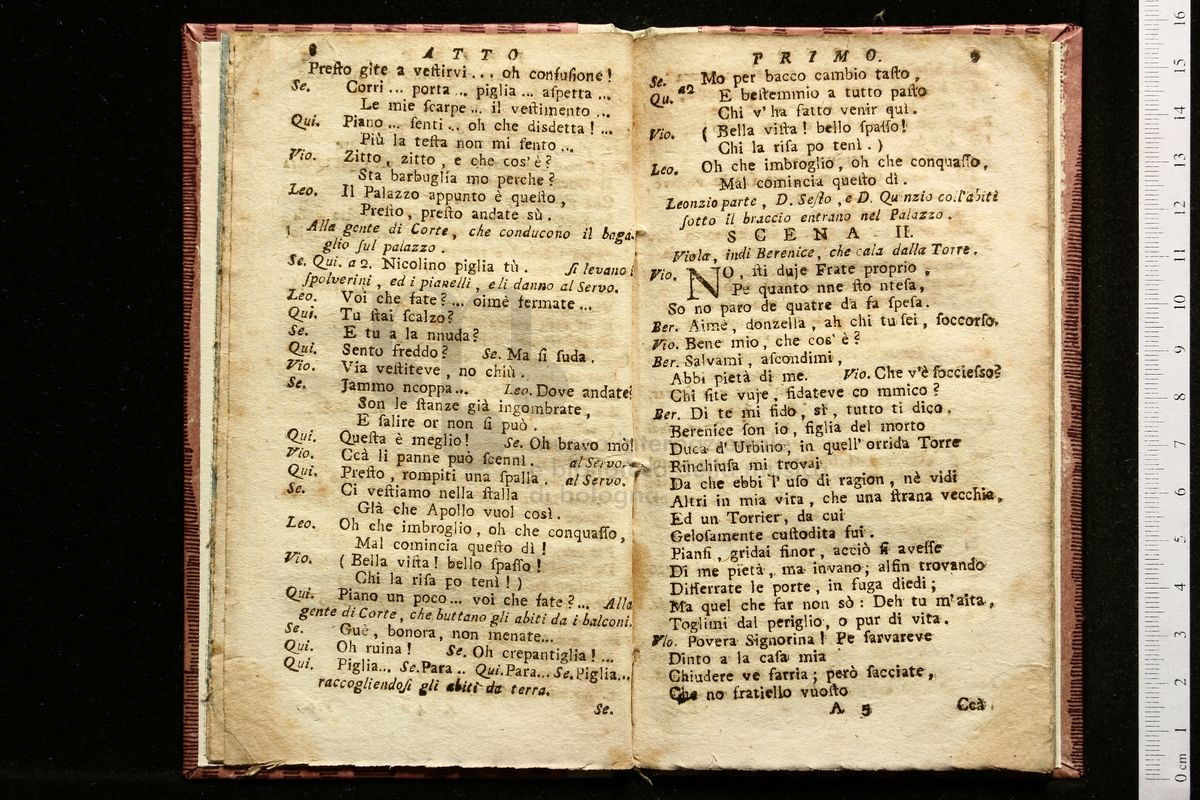 8 ATTO
Presto gite a vestirvi... oh confusione!
Se. Corri... porta... piglia... aspetta...
Le mie scarpe... il vestimento...
Qui. Piano... senti... oh che disdetta!...
Più la testa non mi sento...
Vio. Zitto, zitto, e che cos'è?
Sta barbuglia mo perche?
Leo. Il Palazzo appunto è questo,
Presto, presto andate sù.
Alla gente di Corte, che conducono il baga-
glio sul palazzo.
Se. Qui. a 2. Nicolino piglia tù. si levano i
spolverini, ed i pianelli, e li danno al Servo.
Leo. Voi che fate?... oimè fermate...
Qui. Tu stai scalzo?
Se. E tu a la nnuda?
Qui. Sento freddo? Se. Ma si suda.
Vio. Via vestiteve, no chiù.
Se. Jammo ncoppa... Leo. Dove andate?
Son le stanze già ingombrate,
E salire or non si può.
Qui. Questa è meglio! Se. Oh bravo mò!
Vio. Ccà li panne può scennì. al Servo.
Qui. Presto, rompiti una spalla. al Servo.
Se. Ci vestiamo nella stalla
Già che Apollo vuol così.
Leo. Oh che imbroglio, oh che conquasso,
Mal comincia questo dì!
Vio. (Bella vista! bello spasso!
Chi la risa po tenì!)
Qui. Piano un poco... voi che fate?... Alla
gente di Corte, che buttano gli abiti da i balconi.
Se. Guè, bonora, non menate...
Qui. Oh ruina! Se. Oh crepantiglia!...
Qui. Piglia... Se. Para.. Qui. Para... Se. Piglia...
raccogliendosi gli abiti da terra.
Se.
PRIMO. 9
Se. Mo per bacco cambio tasto,
Qu. a2 E bestemmio a tutto pasto
Chi v'ha fatto venir quì.
Vio. (Bella vista! bello spasso!
Chi la risa po tenì.)
Leo. Oh che imbroglio, oh che conquasso,
Mal comincia questo dì.
Leonzio parte, D. Sesto, e D. Quinzio coll'abiti
sotto il braccio entrano nel Palazzo.
SCENA II.
Viola, indi Berenice, che cala dalla Torre.
Vio. NO, sti duje Frate proprio,
Pe quanto nne sto ntesa,
So no paro de quatre da fa spesa.
Ber. Aimè, donzella, ah chi tu sei, soccorso.
Vio. Bene mio, che cos'è?
Ber. Salvami, ascondimi,
Abbi pietà di me. Vio. Che v'è socciesso?
Chi site vuje, fidateve co mmico?
Ber. Di te mi fido, sì, tutto ti dico.
Berenice son io, figlia del morto
Duca d'Urbino, in quell'orrida Torre
Rinchiusa mi trovai
Da che ebbi l'uso di ragion, nè vidi
Altri in mia vita, che una strana vecchia,
Ed un Torrier, da cui
Gelosamente custodita fui.
Piansi, gridai finor, acciò si avesse
Di me pietà, ma invano; alfin trovando
Differrate le porte, in fuga diedi;
Ma quel che far non sò: Deh tu m'aita,
Toglimi dal periglio, o pur di vita.
Vio. Povera Signorina! Pe sarvareve
Dinto a la casa mia
Chiudere ve farria; però facciate,
Che no fratiello vuosto
A 5 Ccà